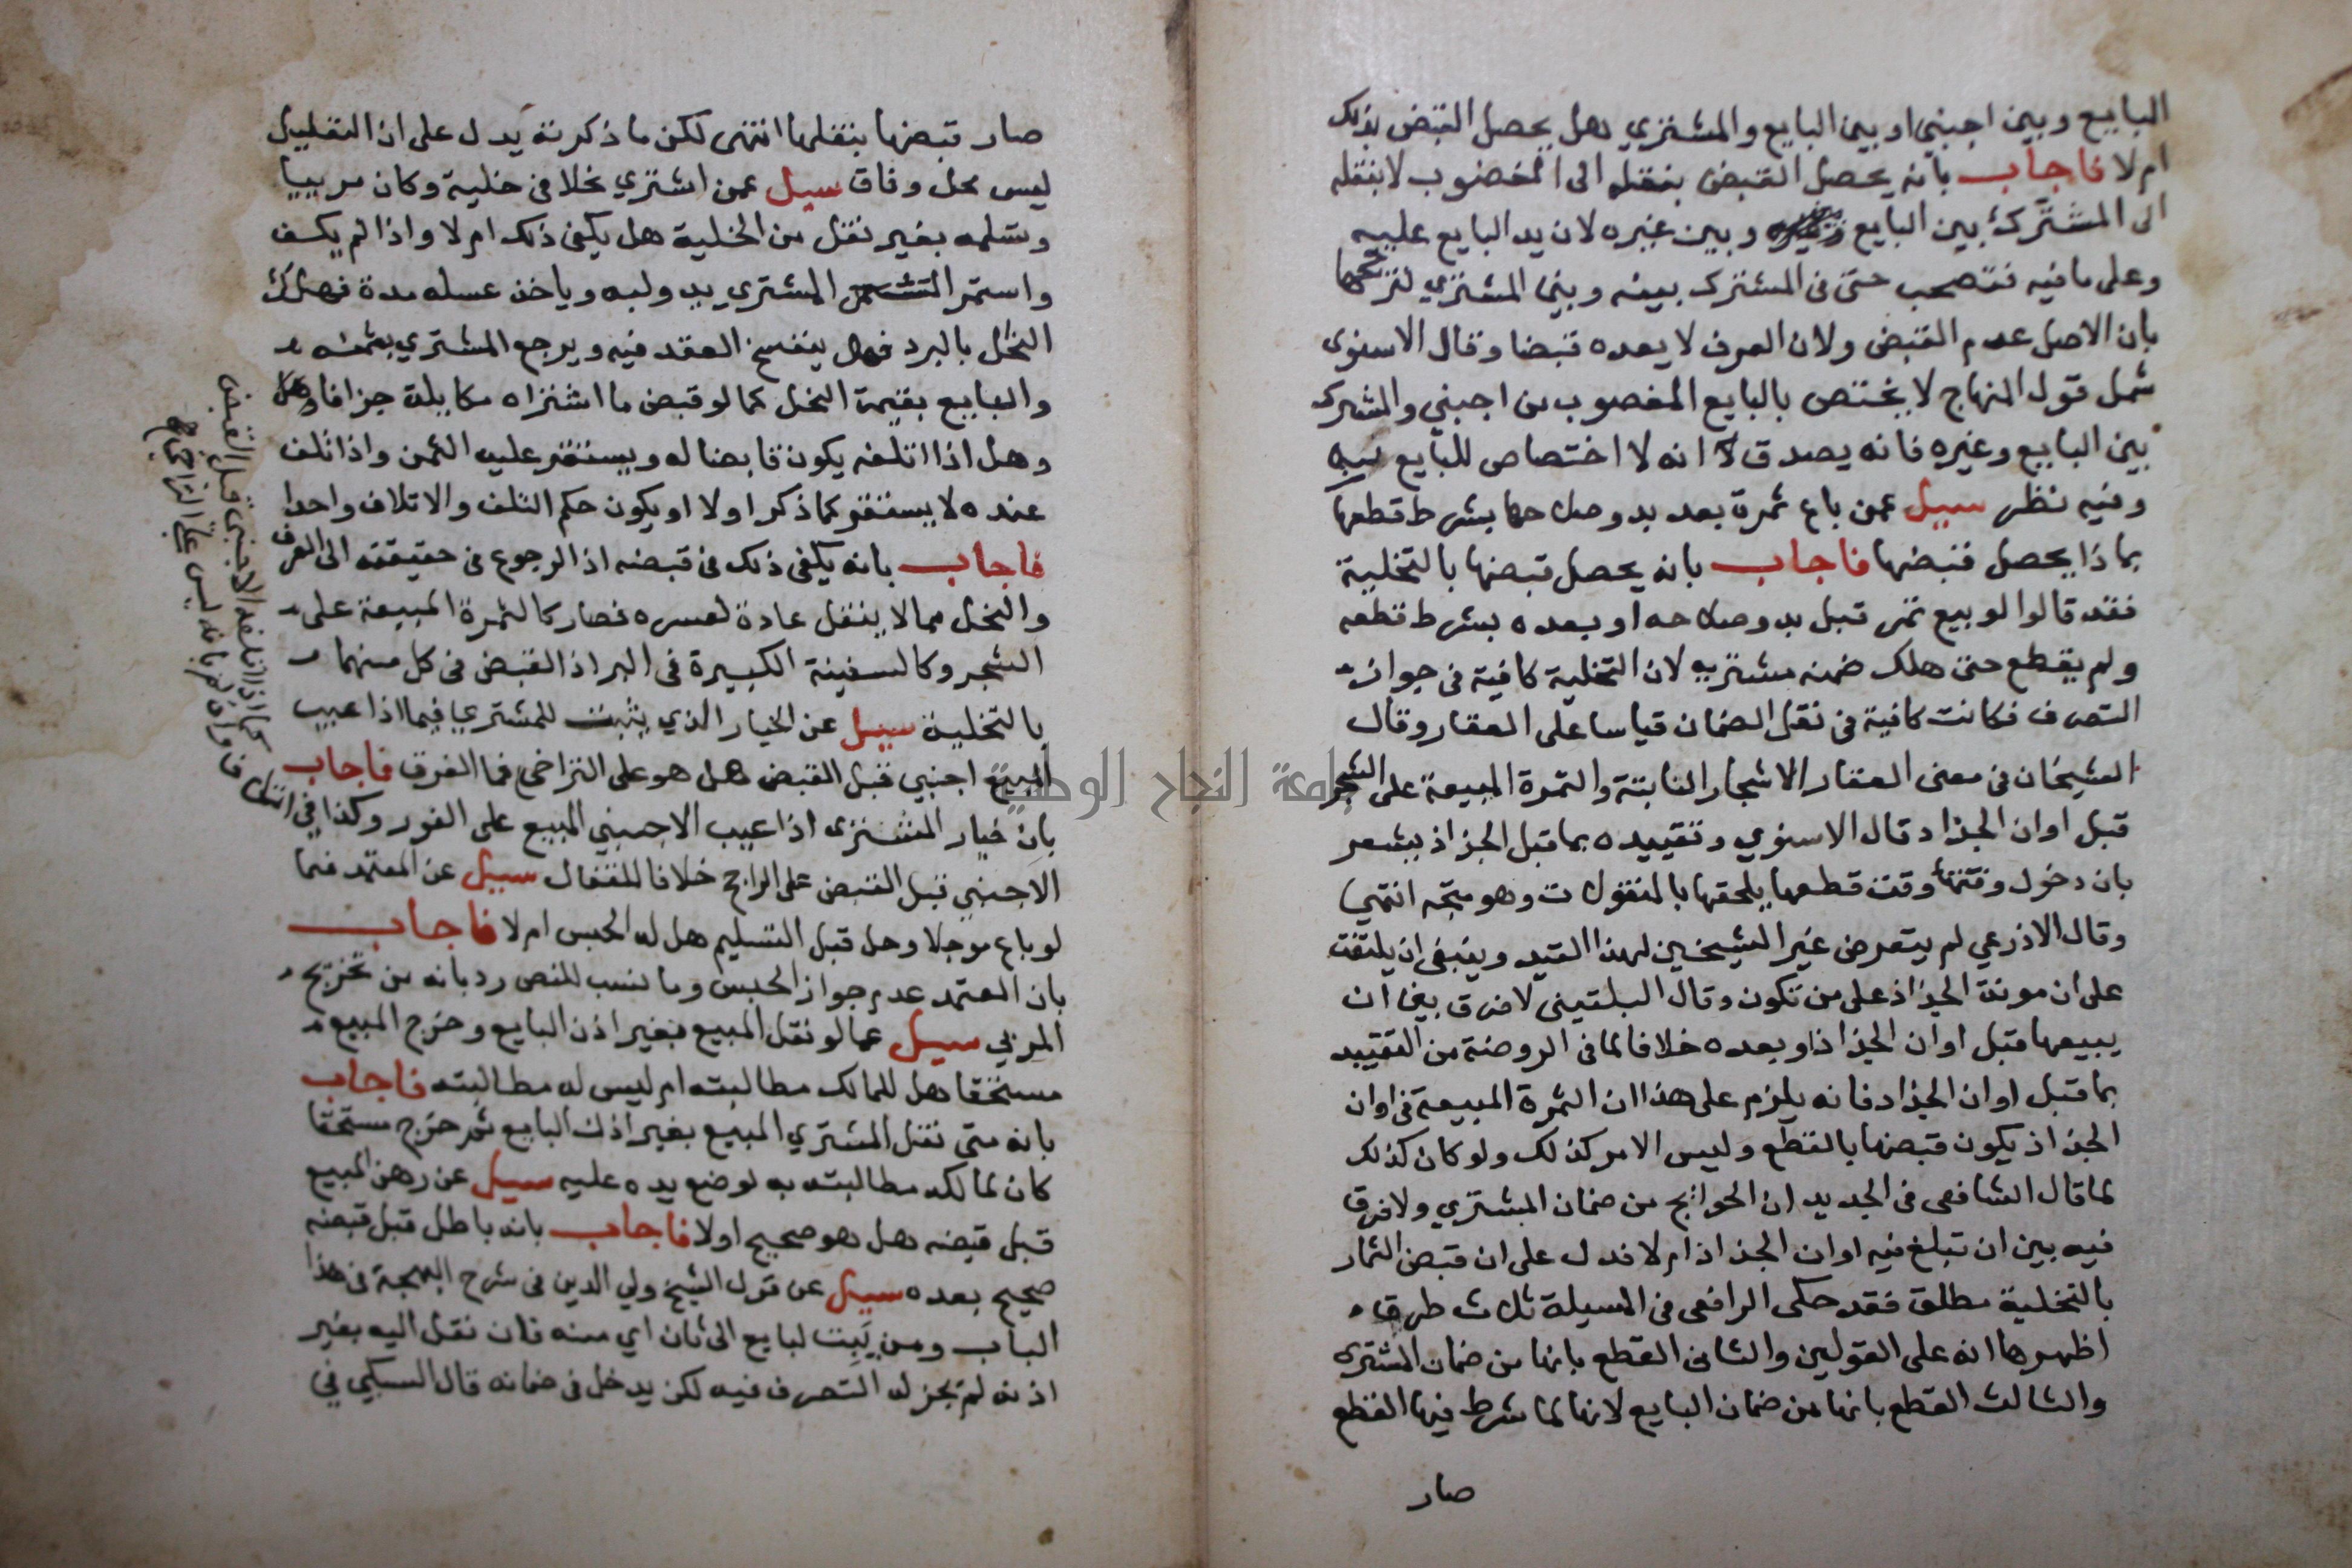 البايع وبين اجنبي او بين البايع والمشتري هل يحصل القبض بذلك
ام لا فاجاب بانه يحصل القبض بنقله الى المغصوب لا بنقله
الى المشترك بين البايع وبين غيره لان يد البايع عليه
وعلى ما فيه فتصحب حتى في المشترك بينه وبين المشتري لترجحها
بان الاصل عدم القبض ولان العرف لا يعده قبضا وقال الاسنوى
شمل قول المنهاج لا يختص بالبايع المغصوب من اجنبي والمشترك
بين البايع وغيره فانه يصدق انه لا اختصاص للبايع به
وفيه نظر سيل عمن باع ثمرة بعد بدو صلاحها بشرط قطعها
بماذا يحصل قبضها فاجاب بانه يحصل قبضها بالتخلية
فقد قالوا لو بيع ثمر قبل بدو صلاحه او بعده بشرط قطعه
ولم يقطع حتى هلك ضمنه مشتريه لان التخلية كافية في جواز
التصرف فكانت كافية في نقل الضمان قياسا على العقار وقال
الشيخان في معنى العقار الاشجار الثابتة والثمرة المبيعة على الشجر
قبل اوان الجذاذ قال الاسنوي وتقييده بما قبل الجذاذ يشعر
بان دخول وقت قطعها يلحقها بالمنقولات وهو متجه انتهى
وقال الاذرعي لم يتعرض غير الشيخين لهذا القيد وينبغي ان يلتفت
على ان مونة الجذاذ على من تكون وقال البلقيني لا فرق بين ان
يبيعها قبل اوان الجذاذ او بعده خلافا لما في الروضة من التقييد
بما قبل اوان الجذاذ فانه يلزم على هذا ان الثمرة المبيعة في اوان
الجذاذ يكون قبضها بالقطع وليس الامر كذلك ولو كان كذلك
لما قال الشافعى في الجديد ان الجوائح من ضمان المشتري ولا فرق
فيه بين ان تبلغ فيه اوان الجذاذ ام لا فدل على ان قبض الثمار
بالتخلية مطلق فقد حكى الرافعى في المسيلة ثلاث طرق
اظهرها انه على القولين والثانى القطع بانها من ضمان المشتري
والثالث القطع بانها من ضمان البايع لانها لما شرط فيها القطع
صار
صار قبضها بنقلها انتهى لكن ما ذكرته يدل على ان التعليل
ليس محل وفاق سيل عمن اشترى نحلا في خلية وكان مرييا
وتسلمه بغير نقل من الخلية هل يكفي ذلك ام لا واذا لم يكف
واستمر المشتري يدولبه وياخذ عسله مدة فهلك
النحل بالبرد فهل ينفسخ العقد فيه ويرجع المشتري بثمنه
والبايع بقيمة النحل كما لو قبض ما اشتراه مكايلة جزافا
وهل اذا اتلفه يكون قابضا له ويستقر عليه الثمن واذا تلف
عنده لا يستقر كما ذكر اولا او يكون حكم التلف والاتلاف واحدا
فاجاب بانه يكفي ذلك في قبضه اذ الرجوع في حقيقته الى العرف
والنحل مما لا ينقل عادة لعسره فصار كالثمرة المبيعة على
الشجر وكالسفينة الكبيرة في البر اذ القبض في كل منهما
بالتخلية سيل عن الخيار الذي يثبت للمشتري فيما اذا عيب
المبيع اجنبي قبل القبض هل هو على التراخي فما الفرق فاجاب
بان خيار المشتري اذا عيب الاجنبي المبيع على الفور وكذا في اتلاف
الاجنبي قبل القبض على الراجح خلافا للقفال سيل عن المعتمد فيما
لو باع موجلا وحل قبل التسليم هل له الحبس ام لا فاجاب
بان المعتمد عدم جواز الحبس وما نسب للنص رد بانه من تخريج
المزني سيل عما لو نقل المبيع بغير اذن البايع وخرج المبيع
مستحقا هل للمالك مطالبته ام ليس له مطالبته فاجاب
بانه متى نقل المشتري المبيع بغير اذن البايع ثم خرج مستحقا
كان لمالكه مطالبته به لوضع يده عليه سيل عن رهن المبيع
قبل قبضه هل هو صحيح او لا فاجاب بانه باطل قبل قبضه
صحيح بعده سيل عن قول الشيخ ولي الدين في شرح البهجة في هذا
الباب ومن بيت لبايع الى ثان اي منه فان نقل اليه بغير
اذنه لم يجز له التصرف فيه لكن يدخل في ضمانه قال السبكي في
كما اذا اتلفه الاجنبي قبل القبض
ليس على التراخي
جامعة النجاح الوطنية